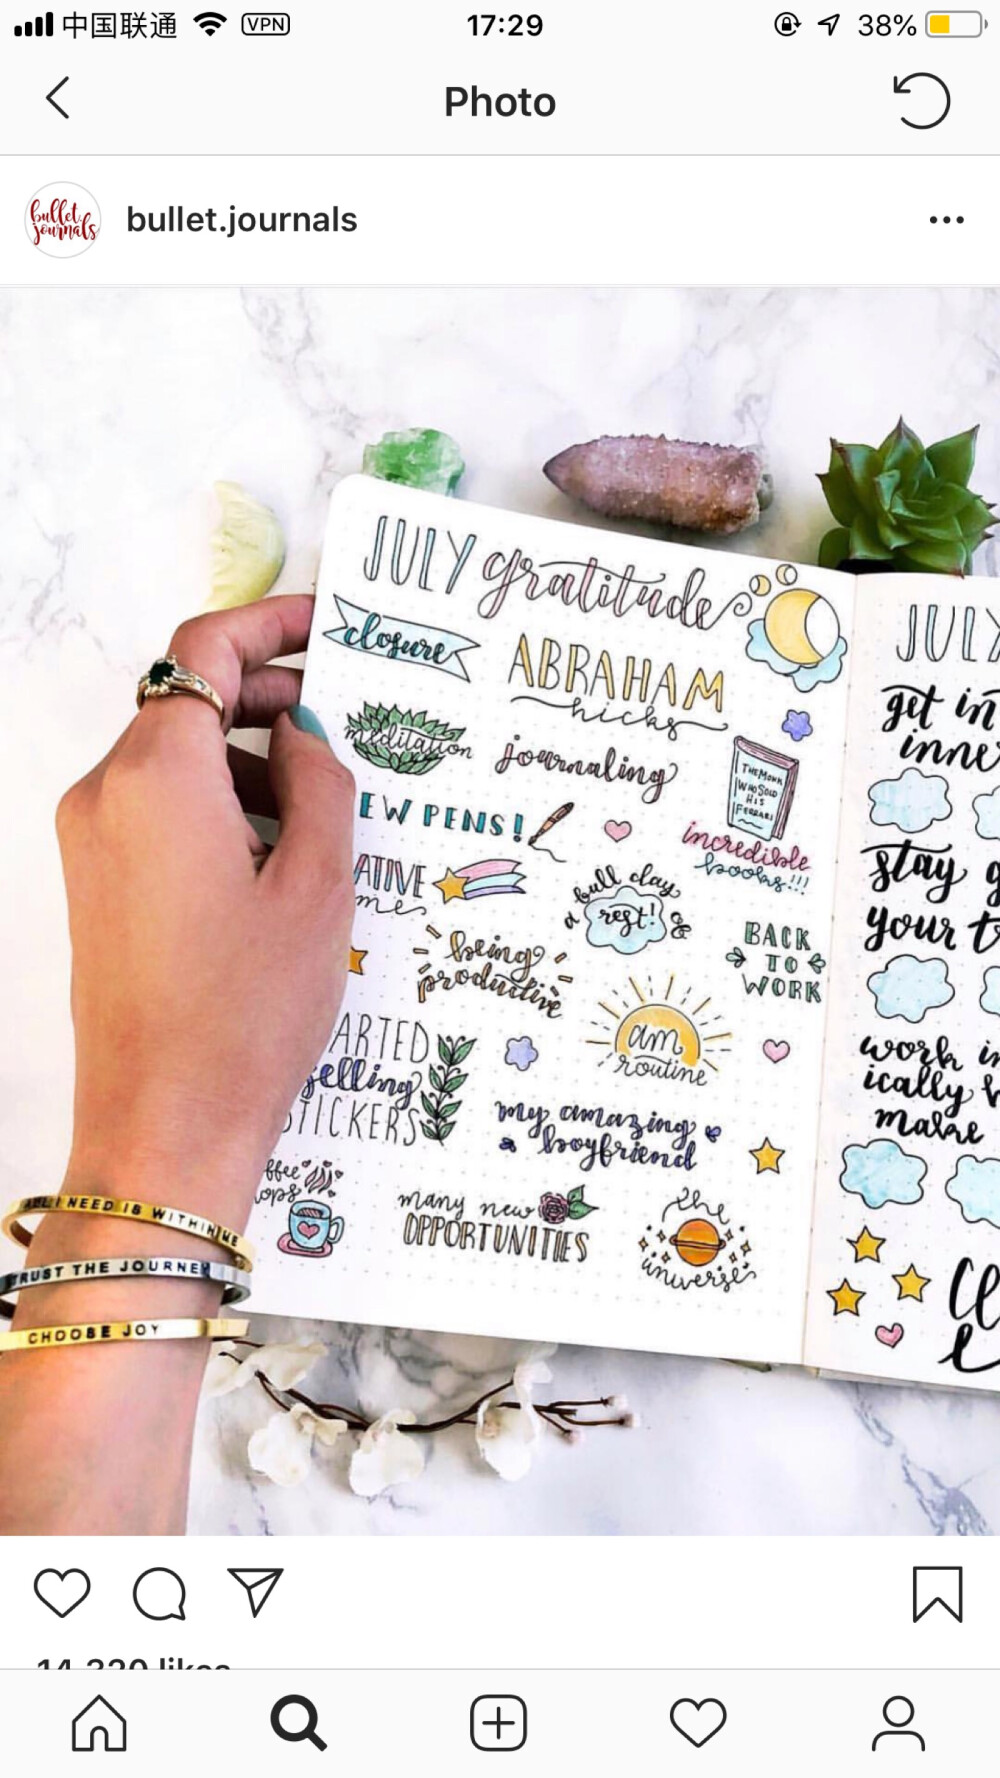 中国联通 VPN 17:29 38%
Photo
bullet.journals
bullet.journals
JULY gratitude
closure
ABRAHAM
hicks
meditation
journaling
THE MONK
WHO SOLD
HIS
FERRARI
incredible
books!!!
EW PENS!
ATIVE
me
a full day of
rest!
BACK
TO
WORK
being
productive
am
routine
ARTED
selling
STICKERS
my amazing
boyfriend
ffee
ops
many new
OPPORTUNITIES
the
universe
JULY
get in
inne
stay g
your t
work in
ically
make
ALL I NEED IS WITHIN ME
TRUST THE JOURNEY
CHOOSE JOY
14,320 likes